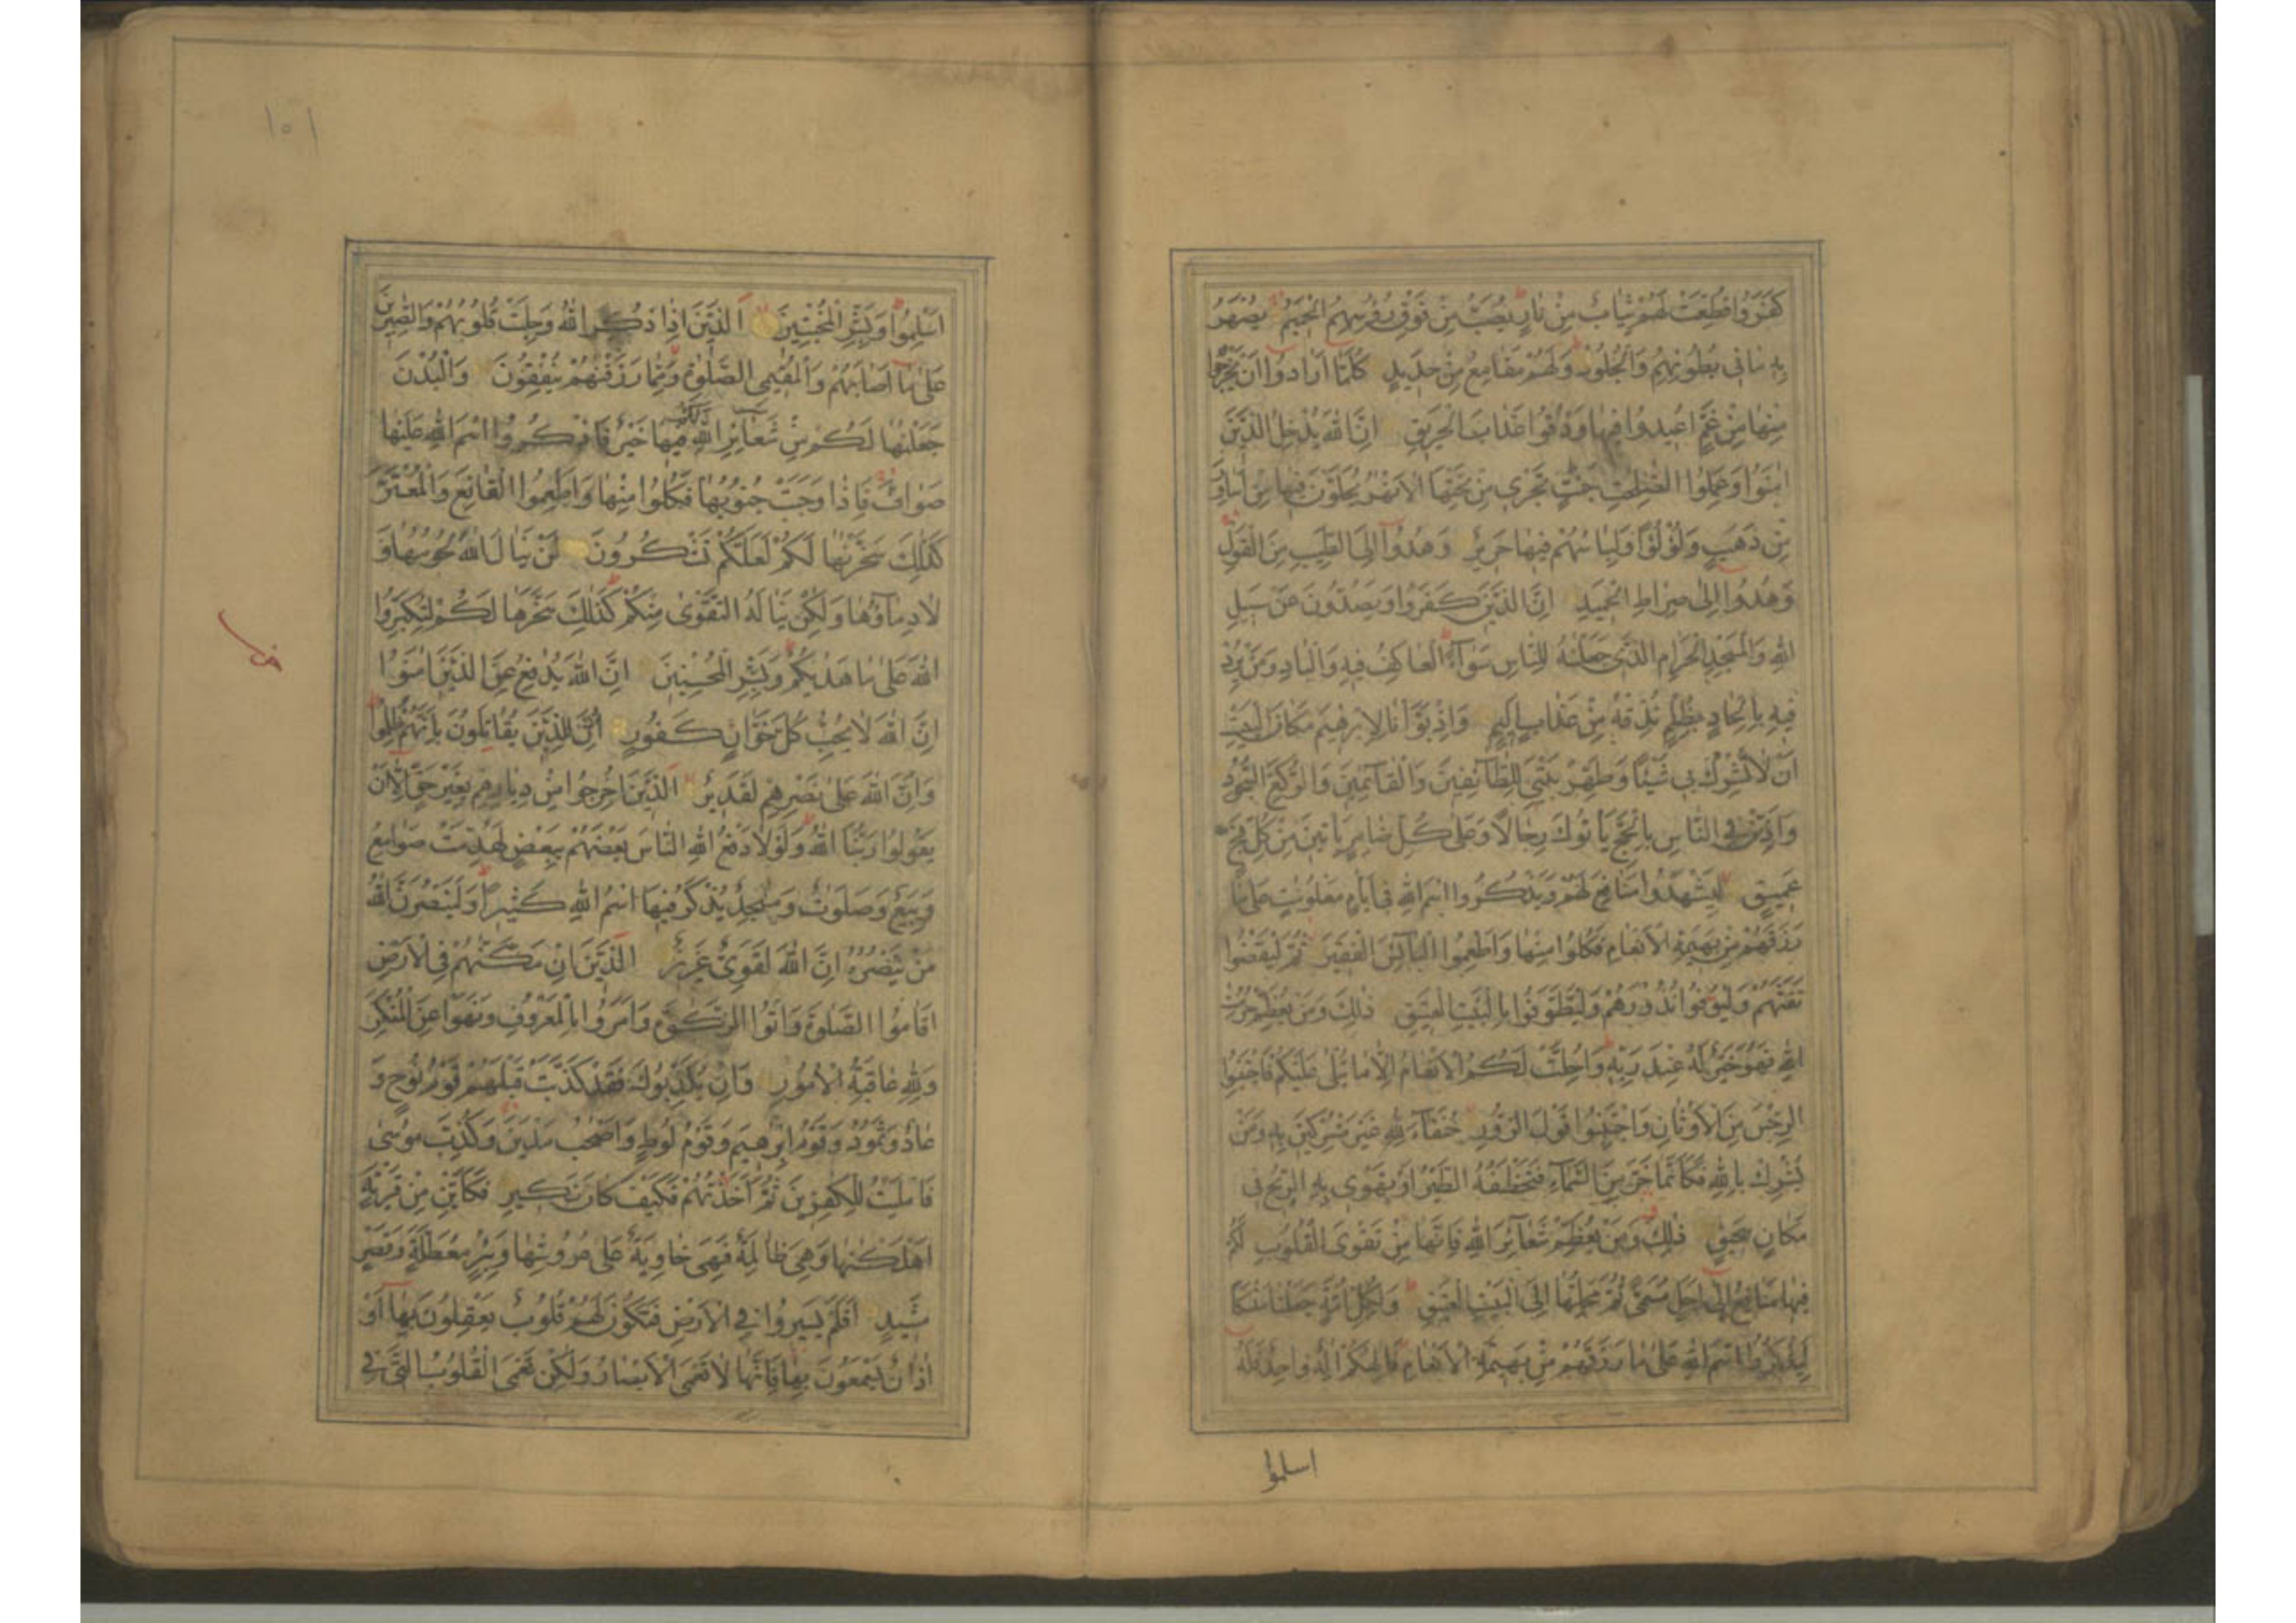 كَفَرُوا قُطِّعَتْ لَهُمْ ثِيَابٌ مِنْ نَارٍ يُصَبُّ مِنْ فَوْقِ رُؤُسِهِمُ الْحَمِيمُ يُصْهَرُ
بِهِ مَا فِي بُطُونِهِمْ وَالْجُلُودُ وَلَهُمْ مَقَامِعُ مِنْ حَدِيدٍ كُلَّمَا أَرَادُوا أَنْ يَخْرُجُوا
مِنْهَا مِنْ غَمٍّ أُعِيدُوا فِيهَا وَذُوقُوا عَذَابَ الْحَرِيقِ إِنَّ اللَّهَ يُدْخِلُ الَّذِينَ
آمَنُوا وَعَمِلُوا الصّٰلِحٰتِ جَنّٰتٍ تَجْرِي مِنْ تَحْتِهَا الْأَنْهٰرُ يُحَلَّوْنَ فِيهَا مِنْ أَسَاوِرَ
مِنْ ذَهَبٍ وَلُؤْلُؤًا وَلِبَاسُهُمْ فِيهَا حَرِيرٌ وَهُدُوا إِلَى الطَّيِّبِ مِنَ الْقَوْلِ
وَهُدُوا إِلَى صِرَاطِ الْحَمِيدِ إِنَّ الَّذِينَ كَفَرُوا وَيَصُدُّونَ عَنْ سَبِيلِ
اللَّهِ وَالْمَسْجِدِ الْحَرَامِ الَّذِي جَعَلْنٰهُ لِلنَّاسِ سَوَآءً الْعَاكِفُ فِيهِ وَالْبَادِ وَمَنْ يُرِدْ
فِيهِ بِإِلْحَادٍ بِظُلْمٍ نُذِقْهُ مِنْ عَذَابٍ أَلِيمٍ وَإِذْ بَوَّأْنَا لِإِبْرٰهِيمَ مَكَانَ الْبَيْتِ
أَنْ لَا تُشْرِكْ بِي شَيْئًا وَطَهِّرْ بَيْتِيَ لِلطَّآئِفِينَ وَالْقَآئِمِينَ وَالرُّكَّعِ السُّجُودِ
وَأَذِّنْ فِي النَّاسِ بِالْحَجِّ يَأْتُوكَ رِجَالًا وَعَلَى كُلِّ ضَامِرٍ يَأْتِينَ مِنْ كُلِّ فَجٍّ
عَمِيقٍ لِيَشْهَدُوا مَنَافِعَ لَهُمْ وَيَذْكُرُوا اسْمَ اللَّهِ فِي أَيَّامٍ مَعْلُومٰتٍ عَلَى مَا
رَزَقَهُمْ مِنْ بَهِيمَةِ الْأَنْعَامِ فَكُلُوا مِنْهَا وَأَطْعِمُوا الْبَآئِسَ الْفَقِيرَ ثُمَّ لْيَقْضُوا
تَفَثَهُمْ وَلْيُوفُوا نُذُورَهُمْ وَلْيَطَّوَّفُوا بِالْبَيْتِ الْعَتِيقِ ذٰلِكَ وَمَنْ يُعَظِّمْ حُرُمٰتِ
اللَّهِ فَهُوَ خَيْرٌ لَهُ عِنْدَ رَبِّهِ وَأُحِلَّتْ لَكُمُ الْأَنْعَامُ إِلَّا مَا يُتْلَى عَلَيْكُمْ فَاجْتَنِبُوا
الرِّجْسَ مِنَ الْأَوْثَانِ وَاجْتَنِبُوا قَوْلَ الزُّورِ حُنَفَآءَ لِلَّهِ غَيْرَ مُشْرِكِينَ بِهِ وَمَنْ
يُشْرِكْ بِاللَّهِ فَكَأَنَّمَا خَرَّ مِنَ السَّمَآءِ فَتَخْطَفُهُ الطَّيْرُ أَوْ تَهْوِي بِهِ الرِّيحُ فِي
مَكَانٍ سَحِيقٍ ذٰلِكَ وَمَنْ يُعَظِّمْ شَعَآئِرَ اللَّهِ فَإِنَّهَا مِنْ تَقْوَى الْقُلُوبِ لَكُمْ
فِيهَا مَنَافِعُ إِلَى أَجَلٍ مُسَمًّى ثُمَّ مَحِلُّهَا إِلَى الْبَيْتِ الْعَتِيقِ وَلِكُلِّ أُمَّةٍ جَعَلْنَا مَنْسَكًا
لِيَذْكُرُوا اسْمَ اللَّهِ عَلَى مَا رَزَقَهُمْ مِنْ بَهِيمَةِ الْأَنْعَامِ فَإِلٰهُكُمْ إِلٰهٌ وَاحِدٌ فَلَهُ
اسلموا
١٥١
أَسْلِمُوا وَبَشِّرِ الْمُخْبِتِينَ الَّذِينَ إِذَا ذُكِرَ اللَّهُ وَجِلَتْ قُلُوبُهُمْ وَالصّٰبِرِينَ
عَلَى مَا أَصَابَهُمْ وَالْمُقِيمِي الصَّلٰوةِ وَمِمَّا رَزَقْنٰهُمْ يُنْفِقُونَ وَالْبُدْنَ
جَعَلْنٰهَا لَكُمْ مِنْ شَعَآئِرِ اللَّهِ لَكُمْ فِيهَا خَيْرٌ فَاذْكُرُوا اسْمَ اللَّهِ عَلَيْهَا
صَوَآفَّ فَإِذَا وَجَبَتْ جُنُوبُهَا فَكُلُوا مِنْهَا وَأَطْعِمُوا الْقَانِعَ وَالْمُعْتَرَّ
كَذٰلِكَ سَخَّرْنٰهَا لَكُمْ لَعَلَّكُمْ تَشْكُرُونَ لَنْ يَنَالَ اللَّهَ لُحُومُهَا وَ
لَا دِمَآؤُهَا وَلٰكِنْ يَنَالُهُ التَّقْوٰى مِنْكُمْ كَذٰلِكَ سَخَّرَهَا لَكُمْ لِتُكَبِّرُوا
اللَّهَ عَلَى مَا هَدٰيكُمْ وَبَشِّرِ الْمُحْسِنِينَ إِنَّ اللَّهَ يُدٰفِعُ عَنِ الَّذِينَ آمَنُوا
إِنَّ اللَّهَ لَا يُحِبُّ كُلَّ خَوَّانٍ كَفُورٍ أُذِنَ لِلَّذِينَ يُقَاتَلُونَ بِأَنَّهُمْ ظُلِمُوا
وَإِنَّ اللَّهَ عَلَى نَصْرِهِمْ لَقَدِيرٌ الَّذِينَ أُخْرِجُوا مِنْ دِيَارِهِمْ بِغَيْرِ حَقٍّ إِلَّا أَنْ
يَقُولُوا رَبُّنَا اللَّهُ وَلَوْلَا دَفْعُ اللَّهِ النَّاسَ بَعْضَهُمْ بِبَعْضٍ لَهُدِّمَتْ صَوَامِعُ
وَبِيَعٌ وَصَلَوٰتٌ وَمَسٰجِدُ يُذْكَرُ فِيهَا اسْمُ اللَّهِ كَثِيرًا وَلَيَنْصُرَنَّ اللَّهُ
مَنْ يَنْصُرُهُ إِنَّ اللَّهَ لَقَوِيٌّ عَزِيزٌ الَّذِينَ إِنْ مَكَّنّٰهُمْ فِي الْأَرْضِ
أَقَامُوا الصَّلٰوةَ وَآتَوُا الزَّكٰوةَ وَأَمَرُوا بِالْمَعْرُوفِ وَنَهَوْا عَنِ الْمُنْكَرِ
وَلِلَّهِ عَاقِبَةُ الْأُمُورِ وَإِنْ يُكَذِّبُوكَ فَقَدْ كَذَّبَتْ قَبْلَهُمْ قَوْمُ نُوحٍ وَ
عَادٌ وَثَمُودُ وَقَوْمُ إِبْرٰهِيمَ وَقَوْمُ لُوطٍ وَأَصْحٰبُ مَدْيَنَ وَكُذِّبَ مُوسَى
فَأَمْلَيْتُ لِلْكٰفِرِينَ ثُمَّ أَخَذْتُهُمْ فَكَيْفَ كَانَ نَكِيرِ فَكَأَيِّنْ مِنْ قَرْيَةٍ
أَهْلَكْنٰهَا وَهِيَ ظَالِمَةٌ فَهِيَ خَاوِيَةٌ عَلَى عُرُوشِهَا وَبِئْرٍ مُعَطَّلَةٍ وَقَصْرٍ
مَشِيدٍ أَفَلَمْ يَسِيرُوا فِي الْأَرْضِ فَتَكُونَ لَهُمْ قُلُوبٌ يَعْقِلُونَ بِهَا أَوْ
آذَانٌ يَسْمَعُونَ بِهَا فَإِنَّهَا لَا تَعْمَى الْأَبْصَارُ وَلٰكِنْ تَعْمَى الْقُلُوبُ الَّتِي فِي